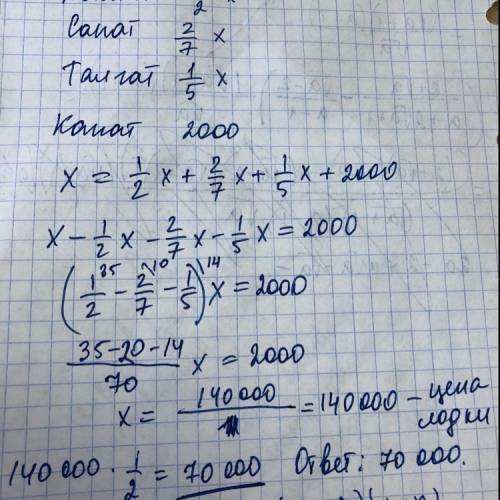 2
Санат 2/7 x
Талгат 1/5 x
Канат 2000
x = 1/2 x + 2/7 x + 1/5 x + 2000
x - 1/2 x - 2/7 x - 1/5 x = 2000
(1/2 \35 - 2/7 \10 - 1/5 \14) x = 2000
35-20-14/70 x = 2000
x = 140000/1 = 140000 - цена лодки
140000 · 1/2 = 70000 Ответ: 70000.